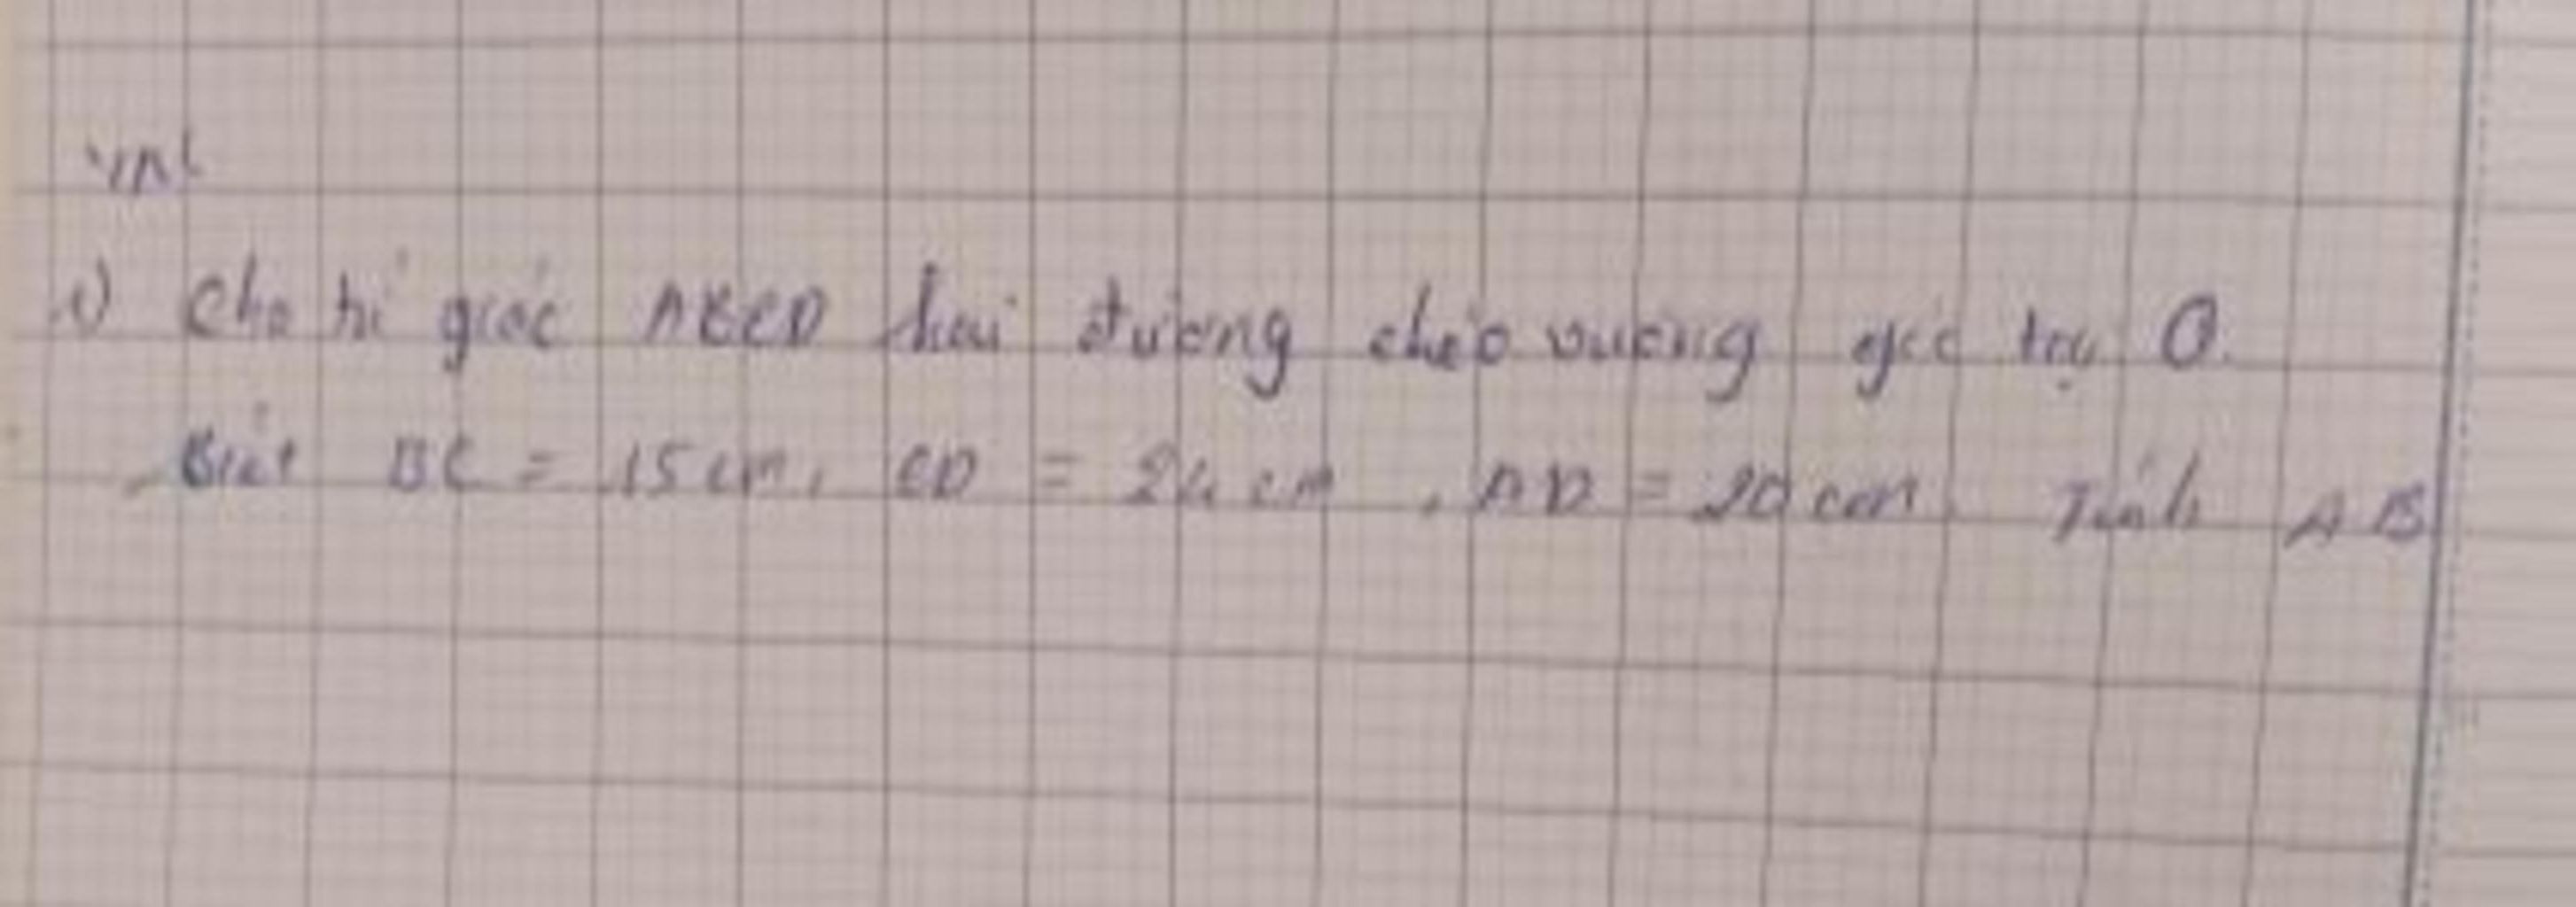 1) Cho tứ giác ABCD hai đường chéo vuông góc tại O.
Biết BC = 15 cm, CD = 24 cm, AD = 20 cm Tính AB